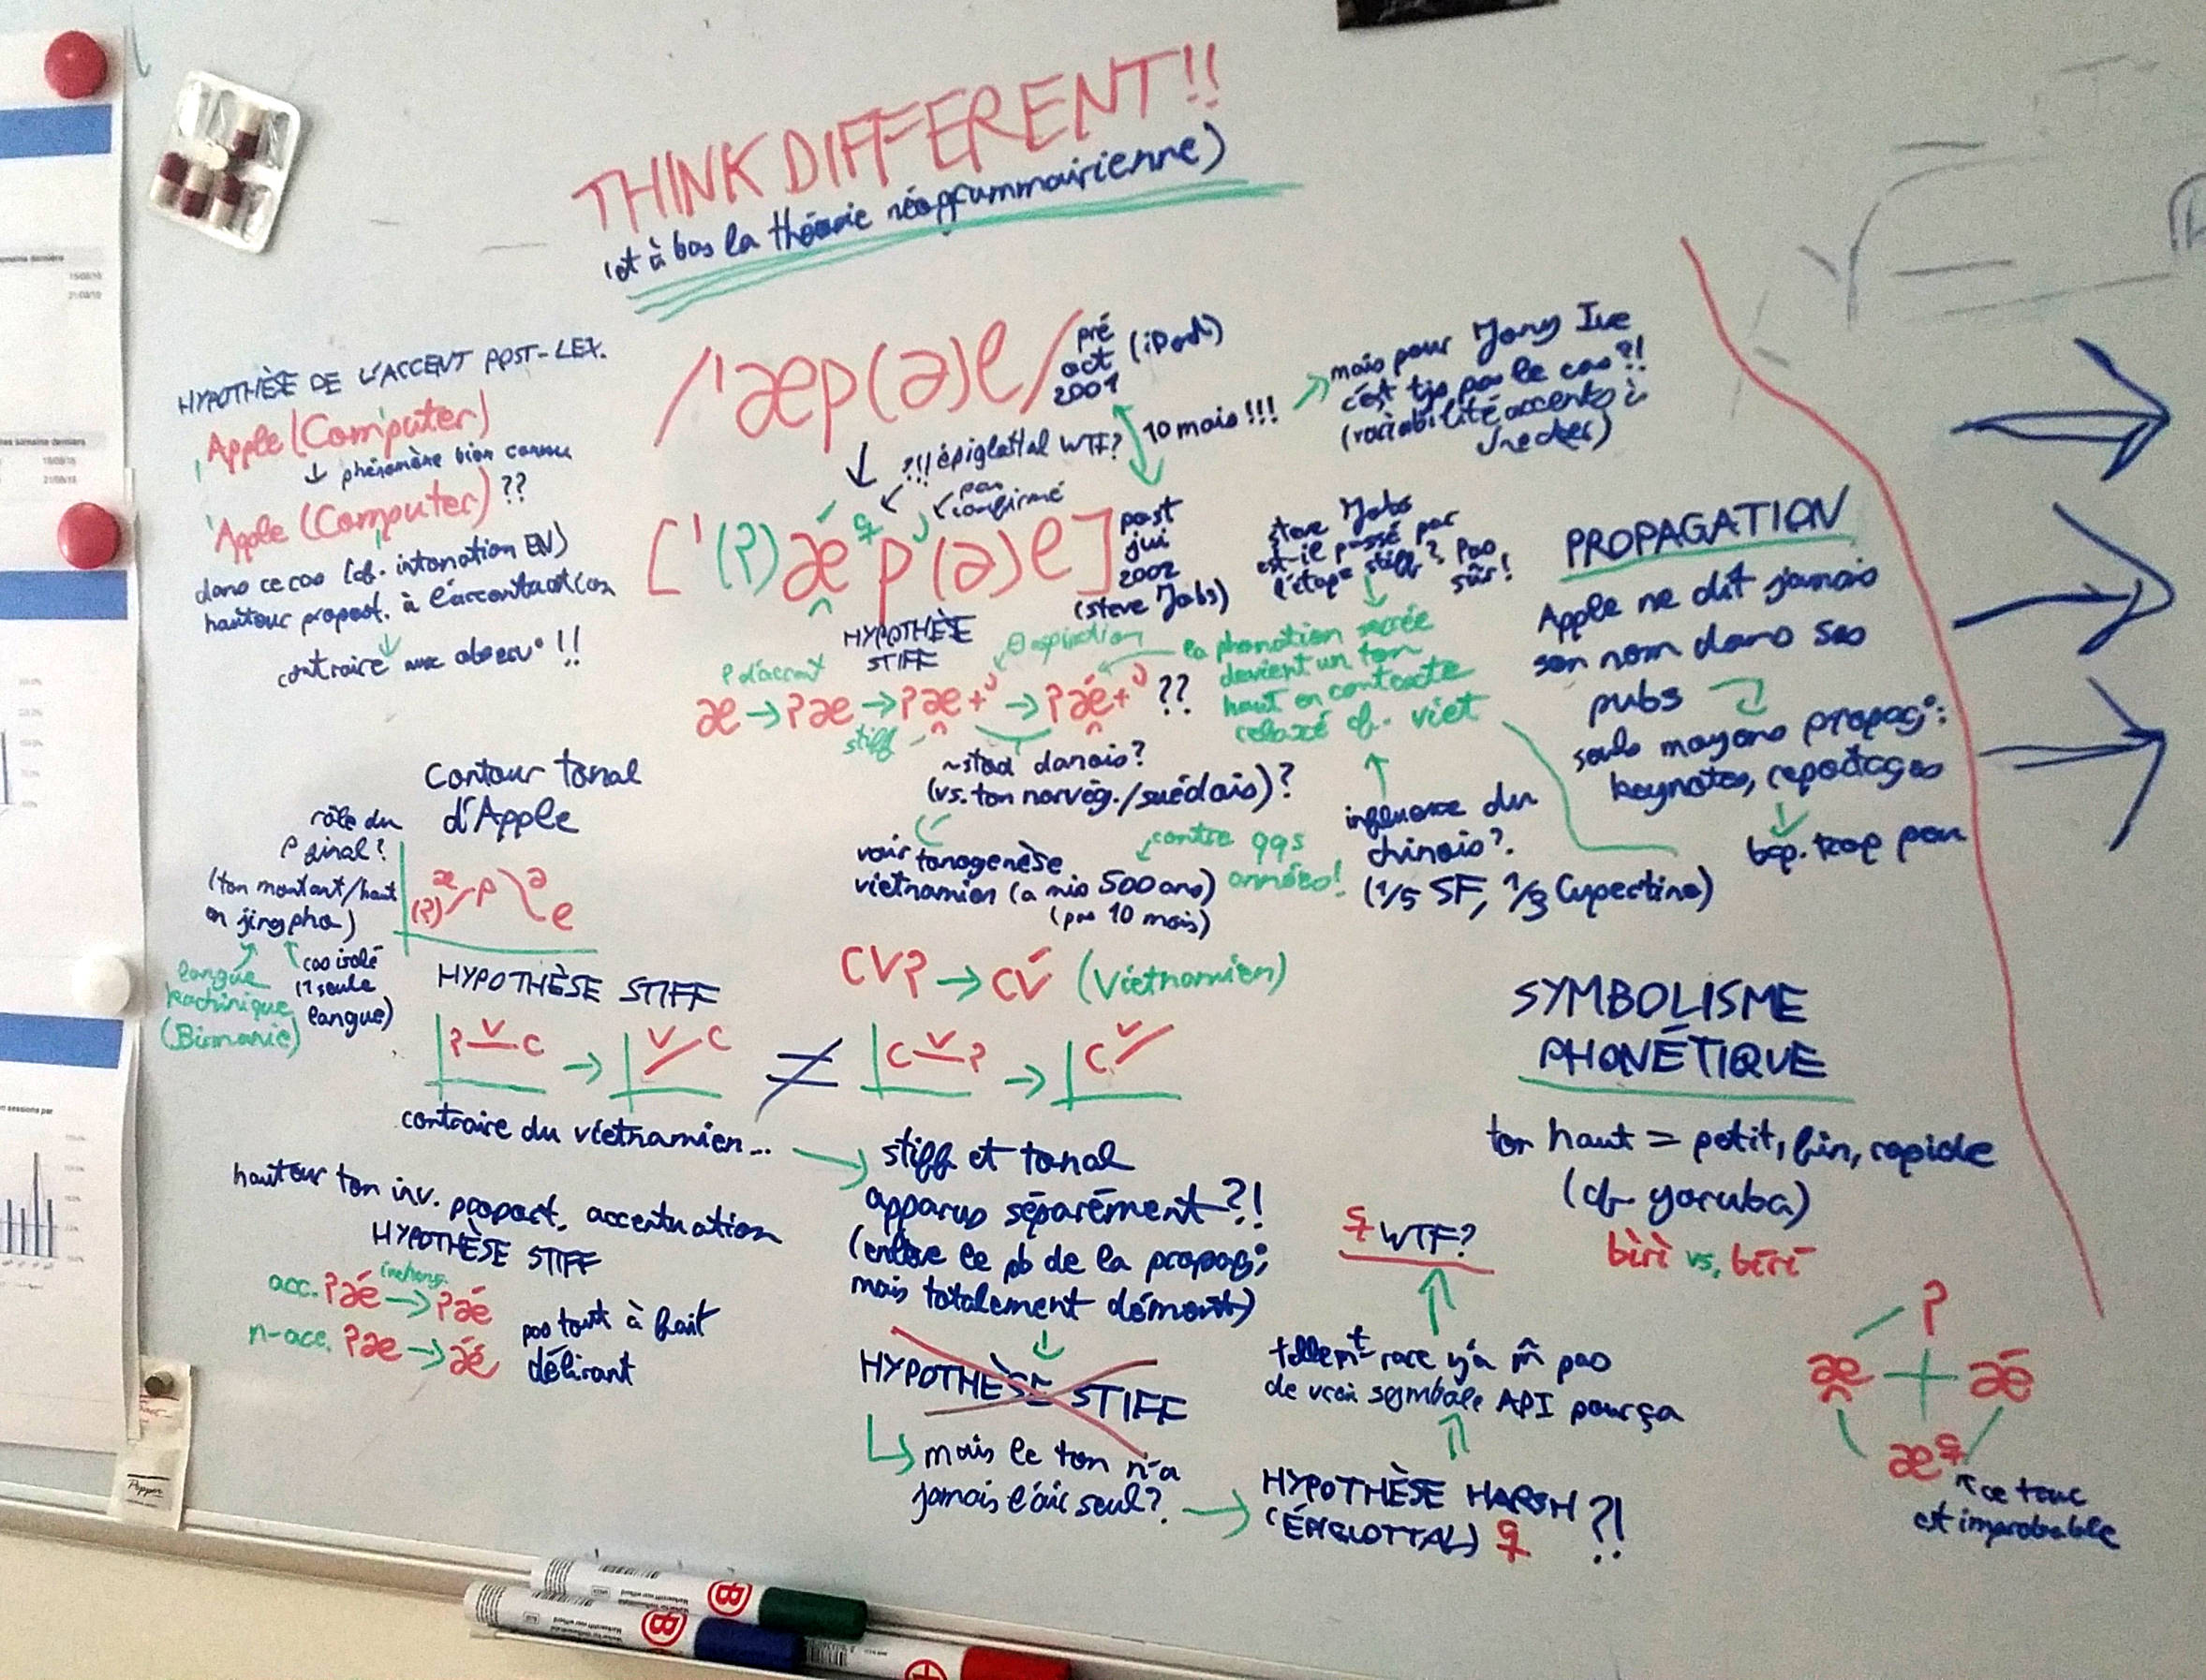 THINK DIFFERENT!!
(et à bas la théorie néogrammairienne)
HYPOTHÈSE DE L'ACCENT POST-LEX.
Apple (Com'puter)
↓ phénomène bien connu
'Apple (Computer) ??
dans ce cas (cf. intonation EN)
hauteur propost. à l'accentuation
contraire aux observ° !!
/'æp(ə)l/
pré
oct (iPod)
2001
10 mois !!!
mais pour Jony Ive
c'est tjs pas le cas ?!
(variabilité accents à
?!! épiglottal WTF?
pas
confirmé
['(ʔ)ǽ p (ə)l]
post
jui
2002
(Steve Jobs)
Steve Jobs
est-il passé par
l'étape stiff ? Pas
sûr !
HYPOTHÈSE
STIFF
aspiration
la phonation serrée
devient un ton
haut en contexte
relaxé cf. viet
æ → ʔæ → ʔæ+ʾ → ʔǽ+ʾ ??
stiff
~stød danois ?
(vs. ton norvég./suédois) ?
voir tonogenèse
vietnamien (a mis 500 ans)
(pas 10 mois)
contre qqs
années !
influence du
chinois ?
(1/5 SF, 1/3 Cupertino)
PROPAGATION
Apple ne dit jamais
son nom dans ses
pubs
seuls moyens propag°:
keynotes, reportages
bcp. trop peu
Contour tonal
d'Apple
rôle du
ʔ final ?
(ton montant/haut
en jingpho)
langue
kachinique
(Birmanie)
cas isolé
(1 seule
langue)
(ʔ) æ p ə l
HYPOTHÈSE STIFF
ʔ V C → V C ≠ C V ʔ → C V
CVʔ → CV́ (Vietnamien)
contraire du vietnamien...
stiff et tonal
apparus séparément ?!
(enlève le pb de la propag°,
mais totalement dément)
hauteur ton inv. propost. accentuation
HYPOTHÈSE STIFF
acc. ʔǽ → ʔǽ
inchang.
n-acc. ʔæ → ǽ
pas tout à fait
délirant
HYPOTHÈSE STIFF
mais le ton n'a
jamais l'air seul ?
HYPOTHÈSE HARSH
(ÉPIGLOTTAL) ?!
tellemt rare y'a m̂ pas
de vrai symbole API pour ça
WTF?
SYMBOLISME
PHONÉTIQUE
ton haut = petit, fin, rapide
(cf. yoruba)
bìrì vs. bírí
ʔ
æ + ǽ
æ
ce truc
est improbable
Pepper